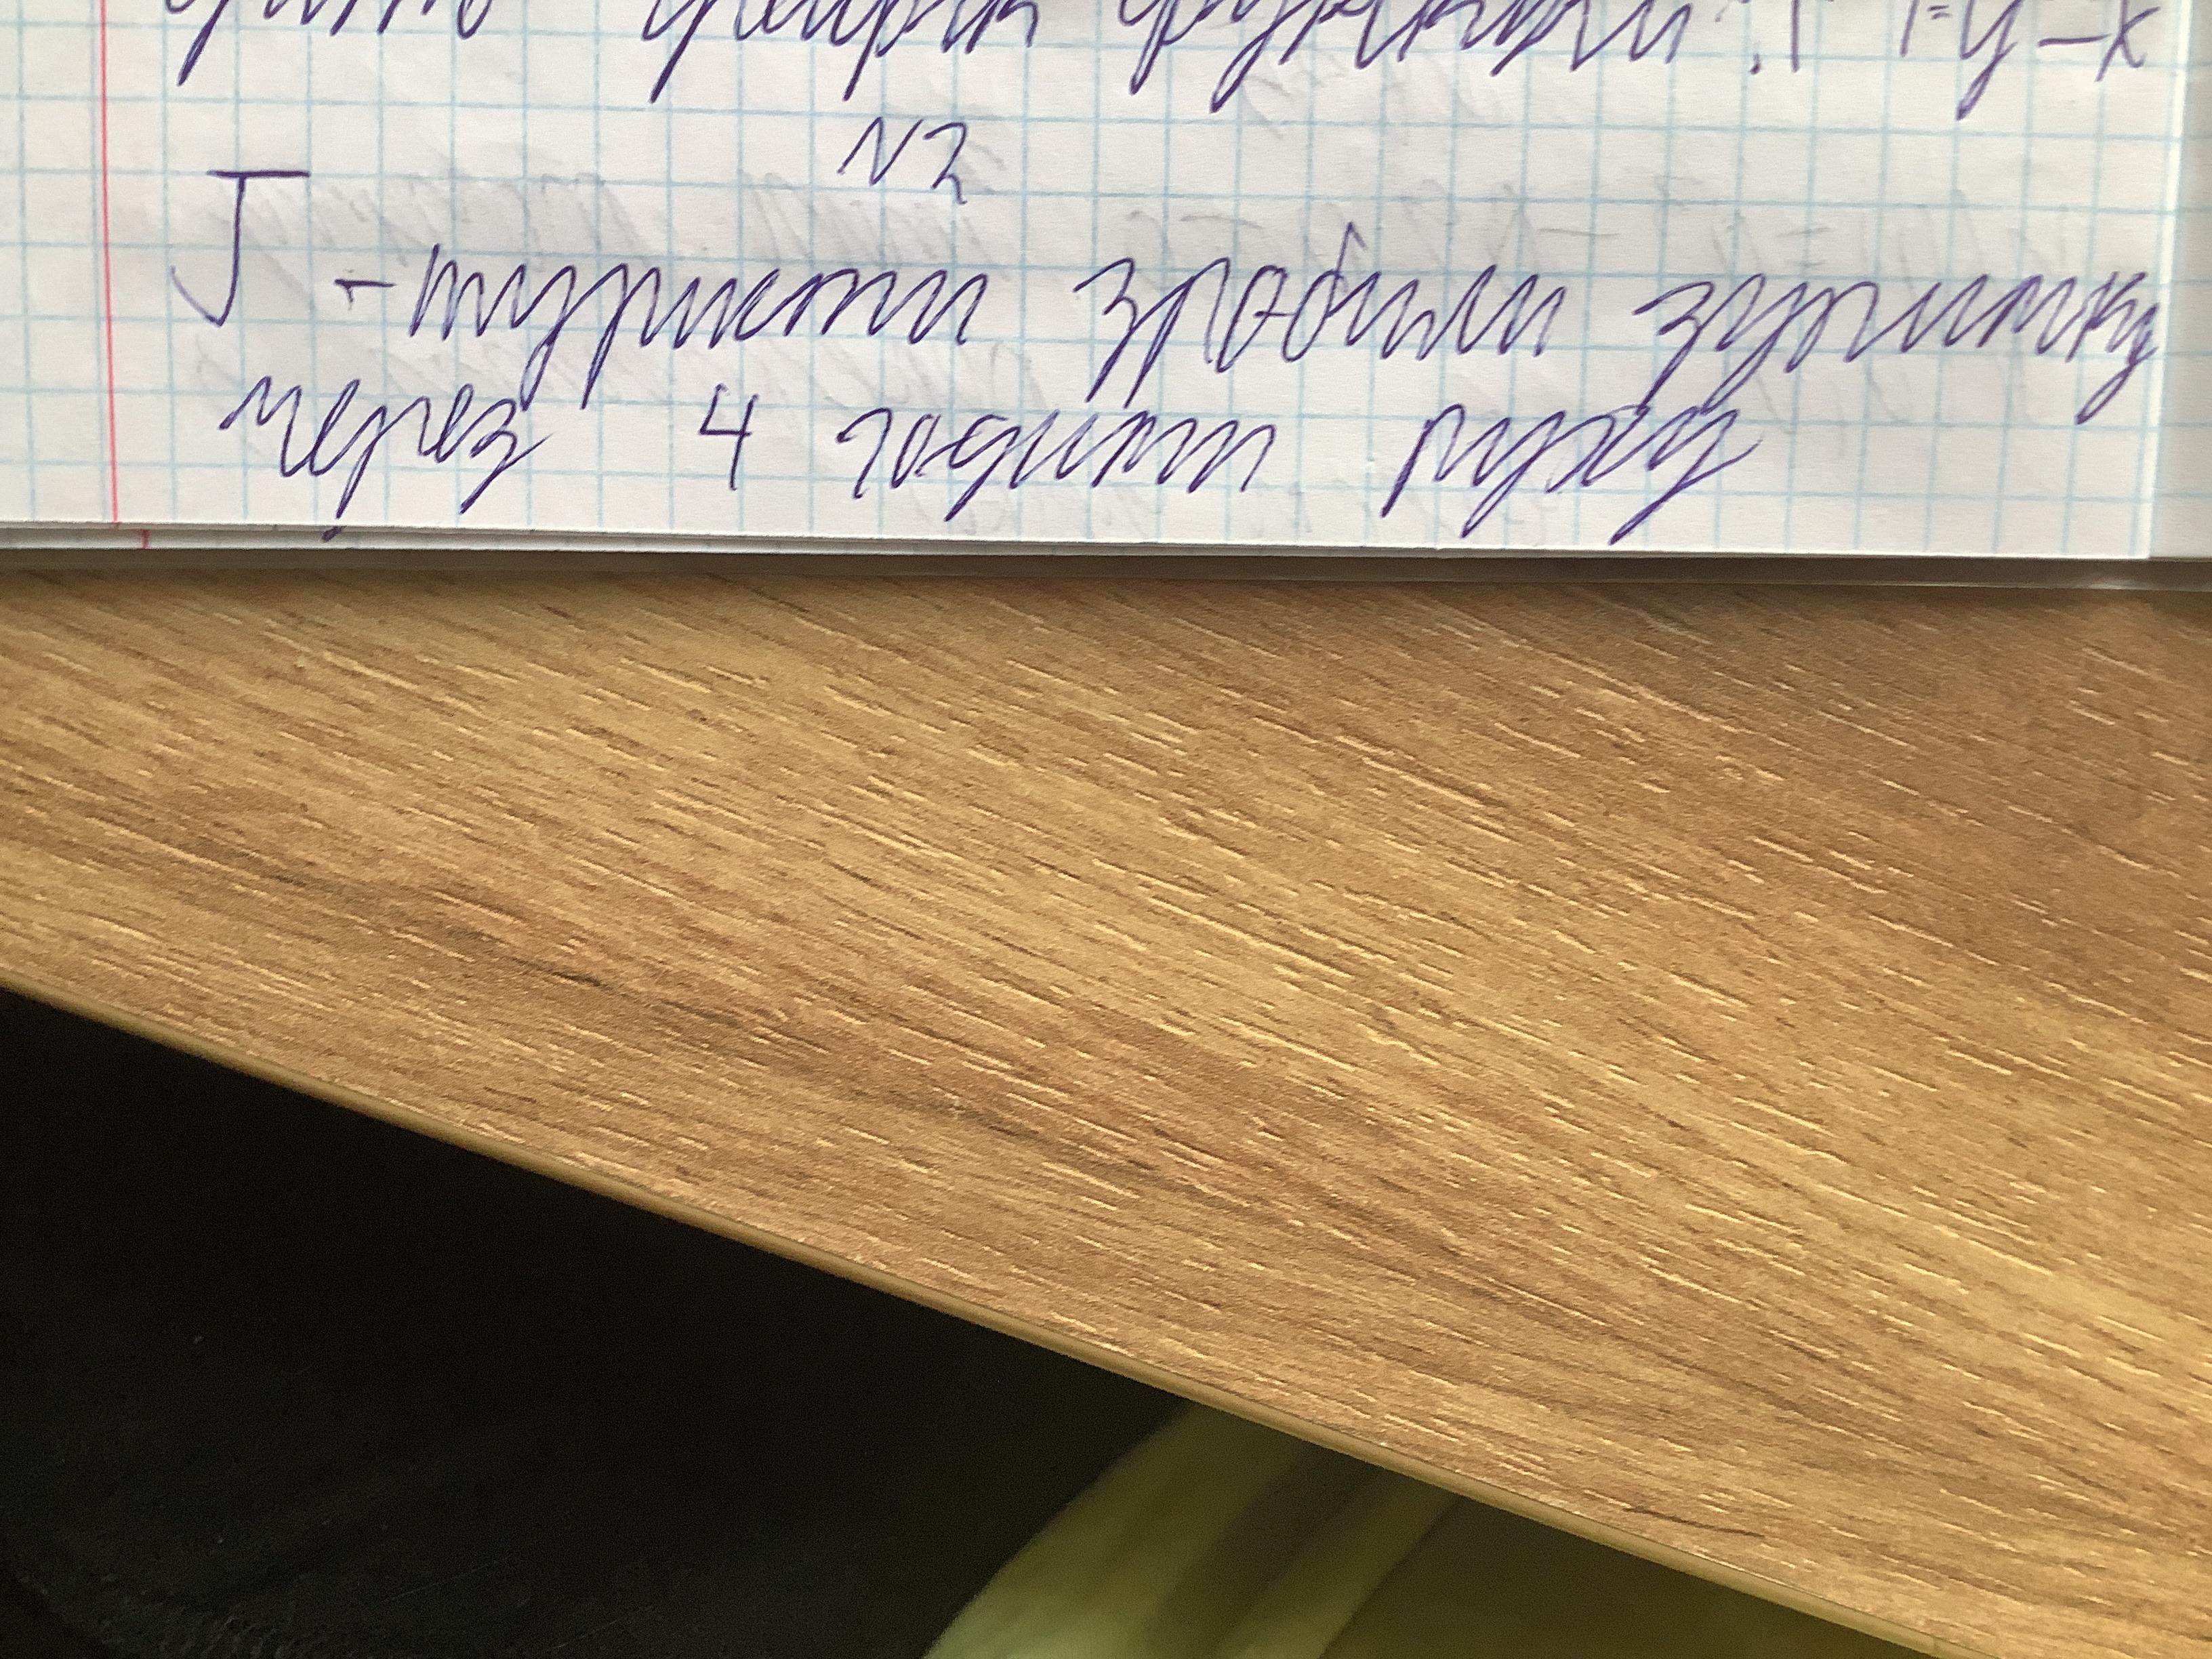 графік функції
= y - x
N2
J - туристи зробили зупинку
через 4 години руху